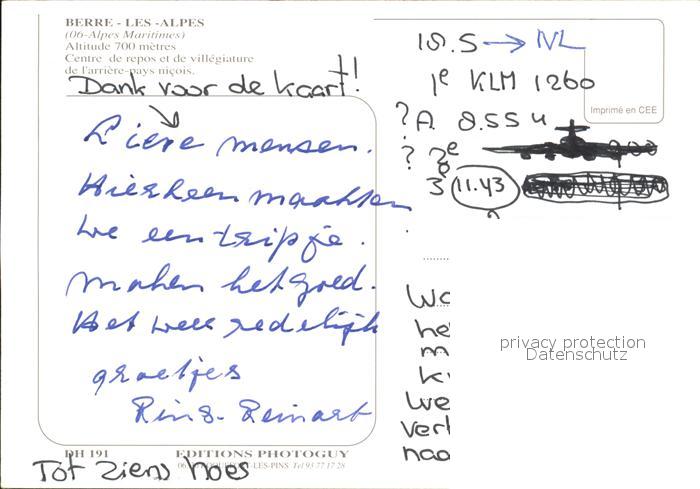 BERRE - LES - ALPES
(06-Alpes Maritimes)
Altitude 700 mètres
Centre de repos et de villégiature
de l'arrière-pays niçois.
Dank voor de kaart!
Lieve mensen.
Hierheen maakten
we een tripje.
maken het goed.
Het weer redelijk
groetjes
Rins - Reinart
DH 191 EDITIONS PHOTOGUY
LES-PINS Tel 93 77 17 28
Tot ziens hoes
→ NL
1e KLM 1260
Imprimé en CEE
? A. 8.55 u
? 2e
3 11.43
Wa
he
m
k
we
vert
naa
privacy protection
Datenschutz